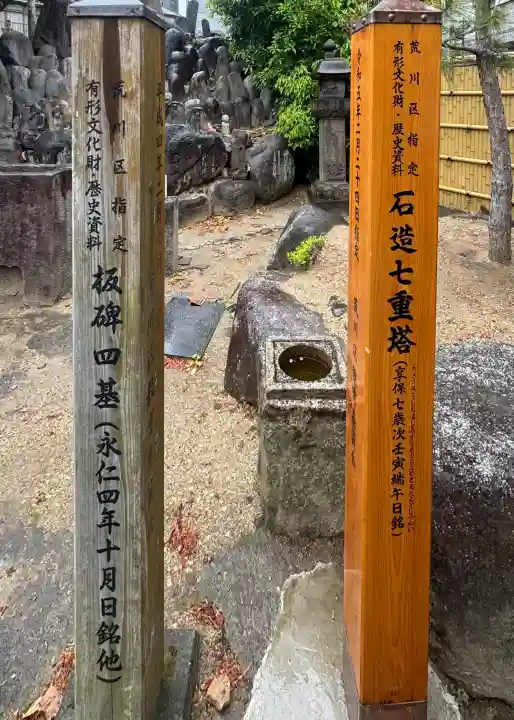 荒川区指定
有形文化財・歴史資料
板碑四基(永仁四年十月日銘他)
荒川区指定
有形文化財・歴史資料
石造七重塔(享保七歳次壬寅端午日銘)
令和五年二月二十四日指定